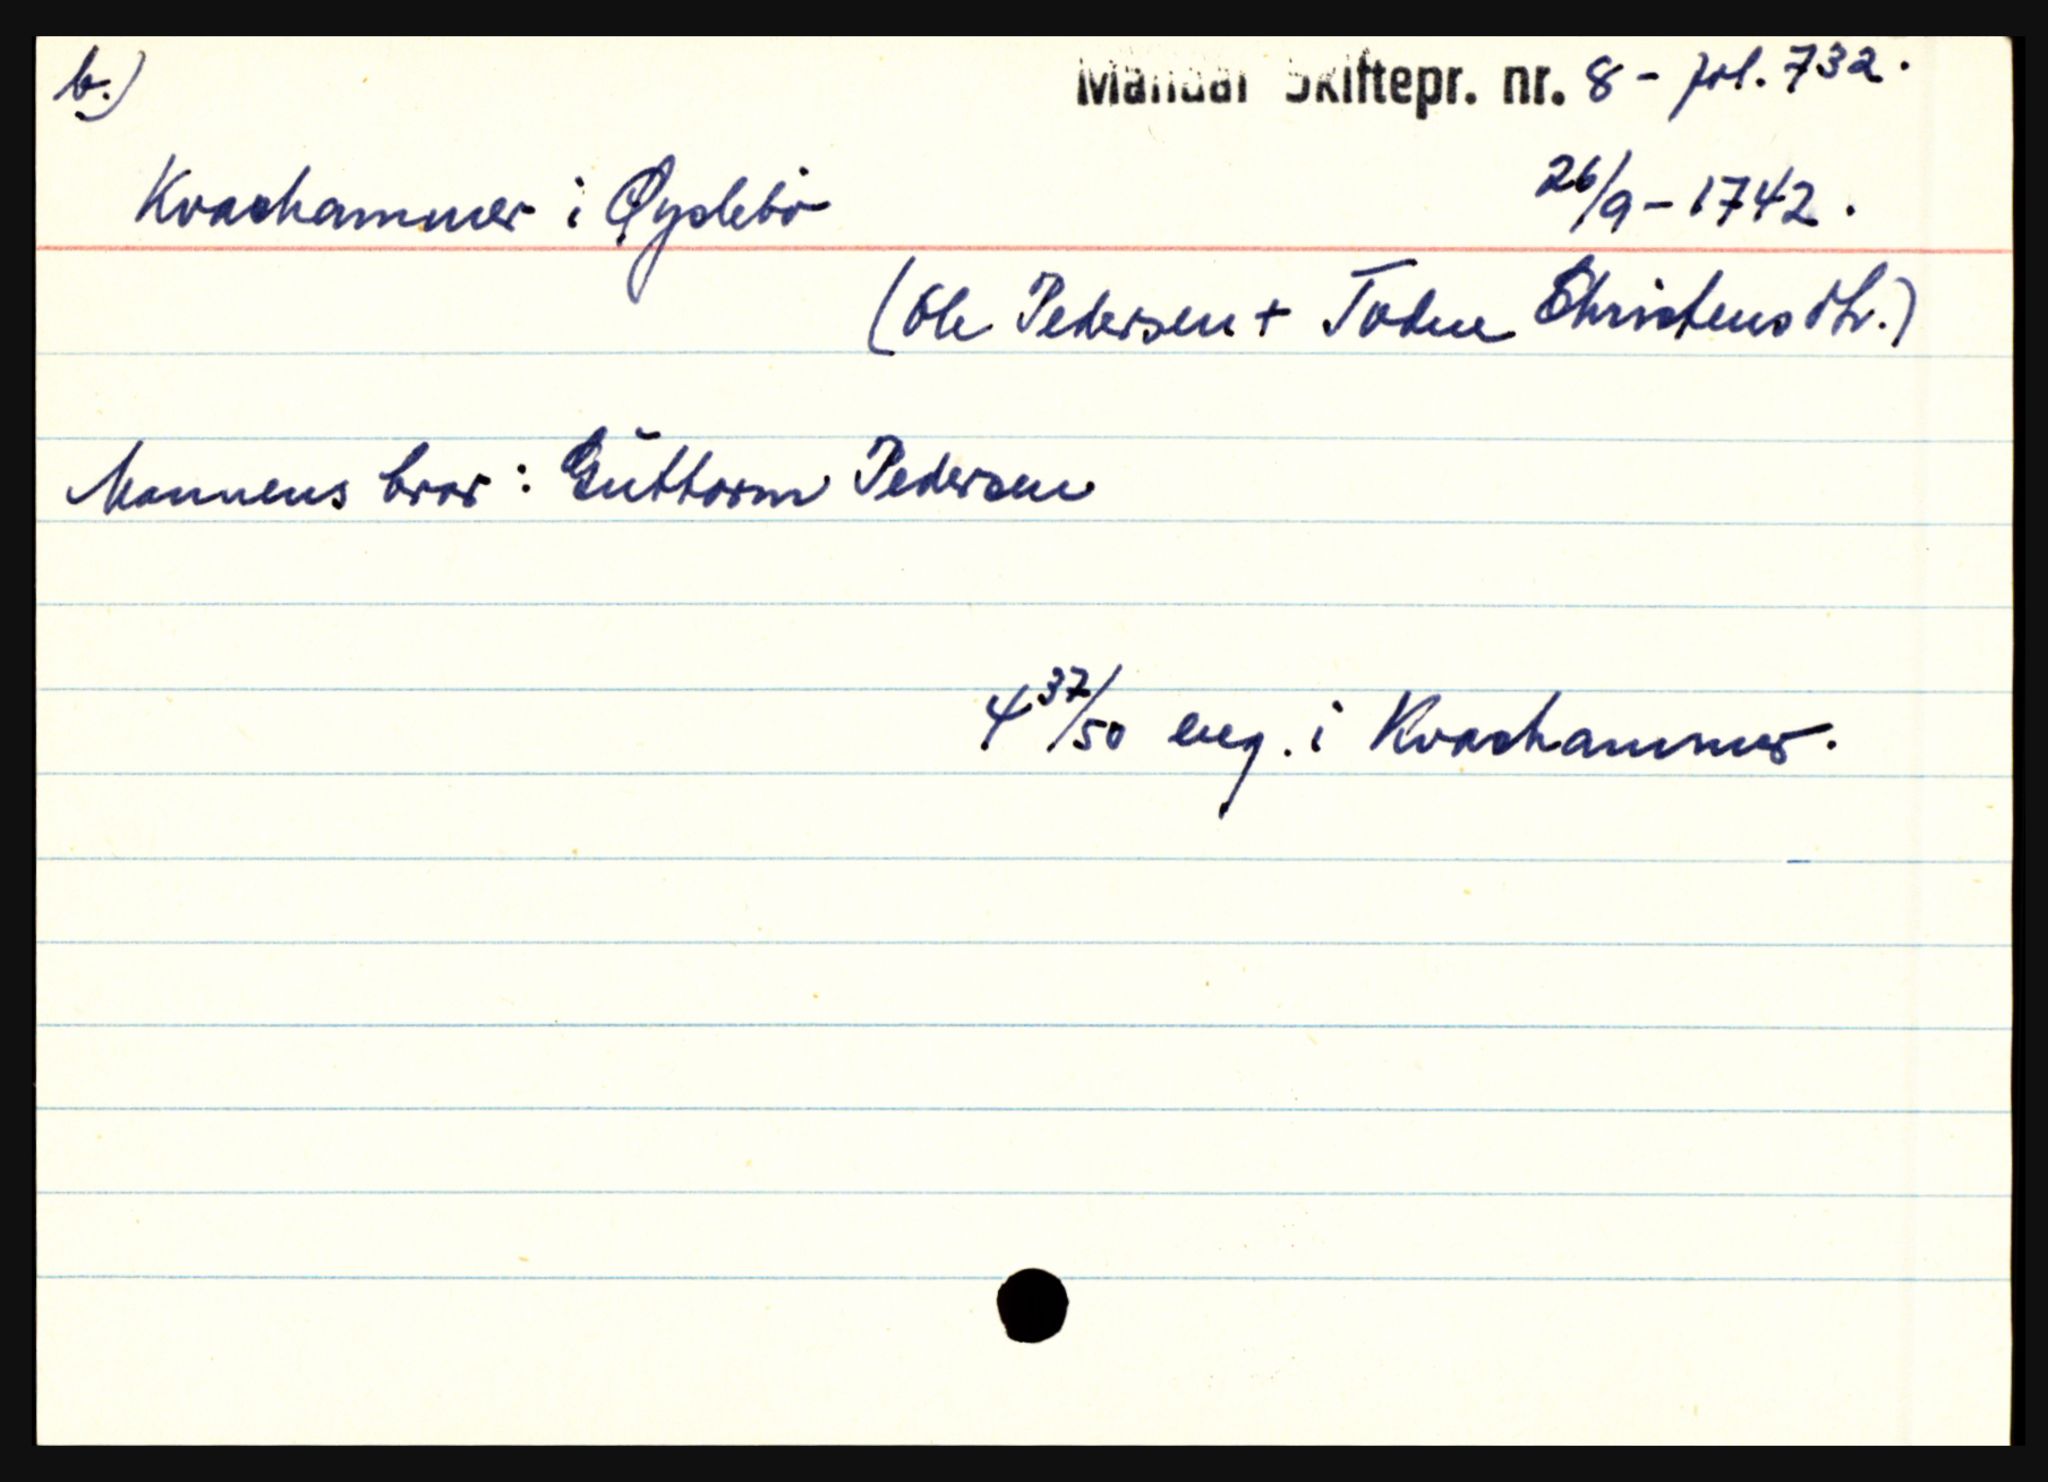 b.) Mandal Skiftepr. nr. 8 - fol. 732.
Kvashammer i Øyslebö 26/9 - 1742.
(Ole Pedersen + Todne Christensdtr.)
Mannens bror: Guttorm Pedersen
4 37/50 eng. i Kvashammer.